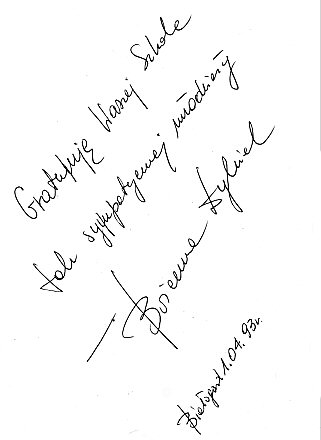 Gratuluję Waszej Szkole
tak sympatycznej młodzieży
Bożenna Dykiel
Białogard 1.04.93r.